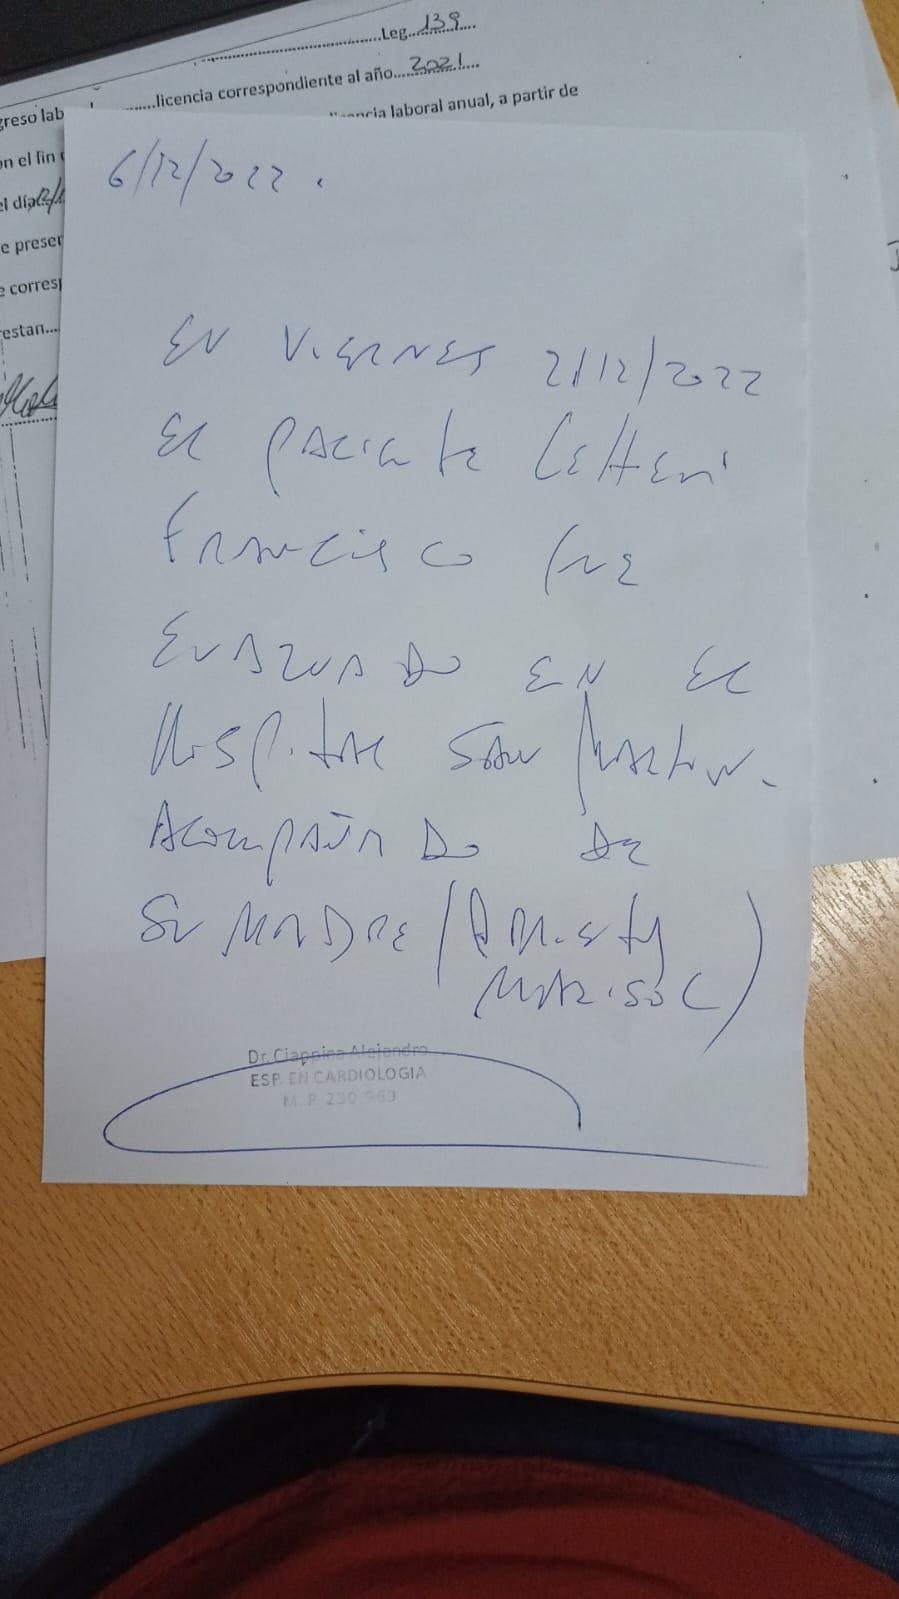 Leg. 139
licencia correspondiente al año 2021
greso lab
laboral anual, a partir de
n el fin
el día
e preser
e corres
restan...
6/12/2022.
EN VIERNES 2/12/2022
EL PACIENTE
FRANCISCO FUE
EVALUADO EN EL
HOSPITAL SAN MARTIN.
ACOMPAÑADO DE
SU MADRE (
MARISOL)
Dr. Ciappina Alejandro
ESP. EN CARDIOLOGIA
M. P. 230.969